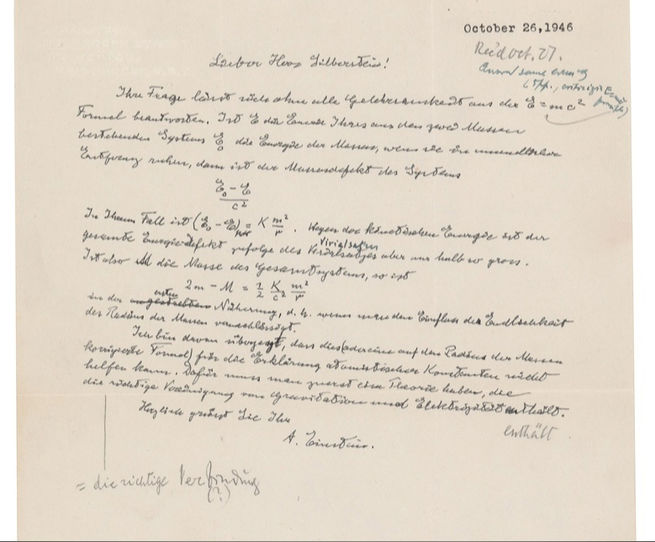 October 26, 1946
Rec'd oct. 27.
Lieber Herr Silberstein!
Ihre Frage lässt sich ohne alle Gelehrsamkeit aus der E = mc²
Formel beantworten. Ist E die Energie Ihres aus den zwei Massen
bestehenden Systems E₀ die Energie der Massen, wenn sie in unendlicher
Entfernung ruhen, dann ist der Massendefekt des Systems
E₀ – E
c²
In Ihrem Fall ist (E₀ – E) = K m²/r . Wegen der kinetischen Energie ist der
Virialsatzes
gesamte Energiedefekt zufolge des aber nur halb so gross.
Ist also M die Masse des Gesamtsystems, so ist
2m – M = ½ K/c² m²/r
ersten
in der Näherung, d. h. wenn man den Einfluss der Endlichkeit
des Radius der Massen vernachlässigt.
Ich bin davon überzeugt, dass dies (oder eine auf den Radius der Massen
korrigierte Formel) für die Erklärung atomistischer Konstanten nicht
helfen kann. Dafür muss man zuerst eine Theorie haben, die
die richtige Vereinigung von Gravitation und Elektrizität enthält.
enthält
Herzlich grüsst Sie Ihr
A. Einstein.
= die richtige Verbindung
(?)